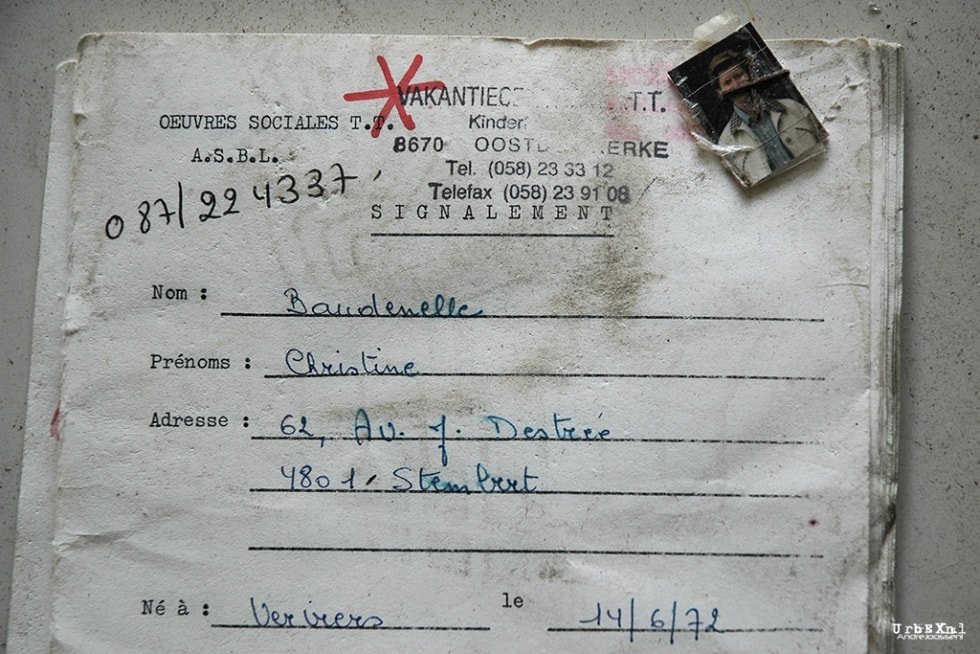 VAKANTIEC T.T.
OEUVRES SOCIALES T.T.
Kinder
A.S.B.L.
8670 OOSTD ERKE
Tel. (058) 23 33 12
087/224337
Telefax (058) 23 91 08
SIGNALEMENT
Nom : Baudenelle
Prénoms : Christine
Adresse : 62, Av. J. Destrée
4801 Stembert
Né à : Verviers le 14/6/72
UrbEXnl